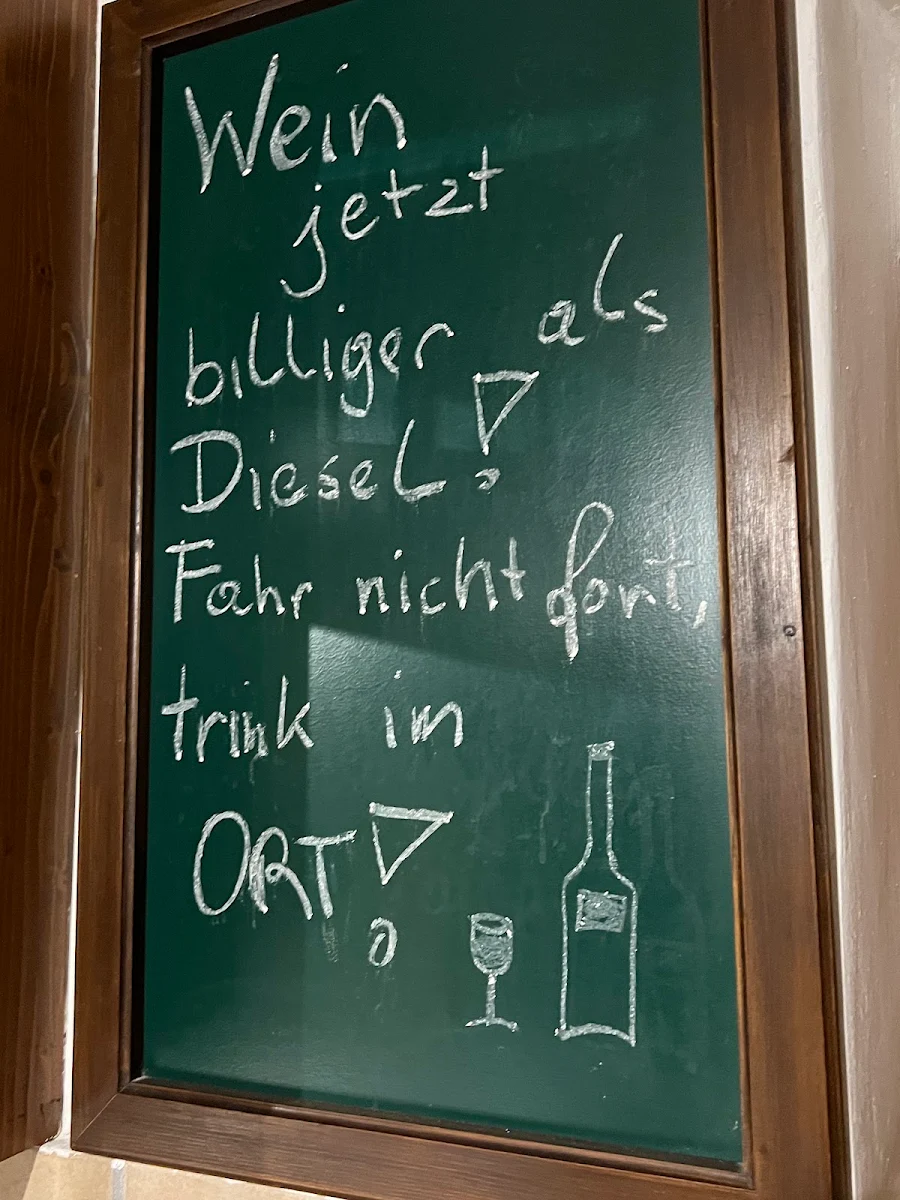 Wein
jetzt
billiger als
Diesel!
Fahr nicht fort,
trink im
ORT!